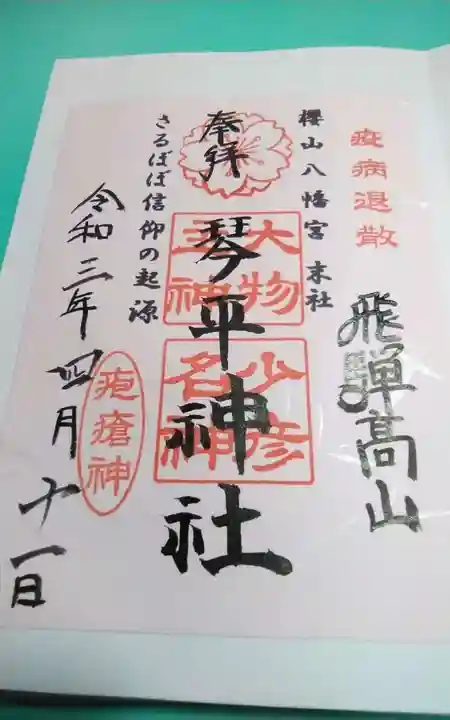 疫病退散
飛騨高山
櫻山八幡宮 末社
奉拝
大物
主神
少彦
名神
琴平神社
さるぼぼ信仰の起源
疱瘡神
令和三年四月十一日